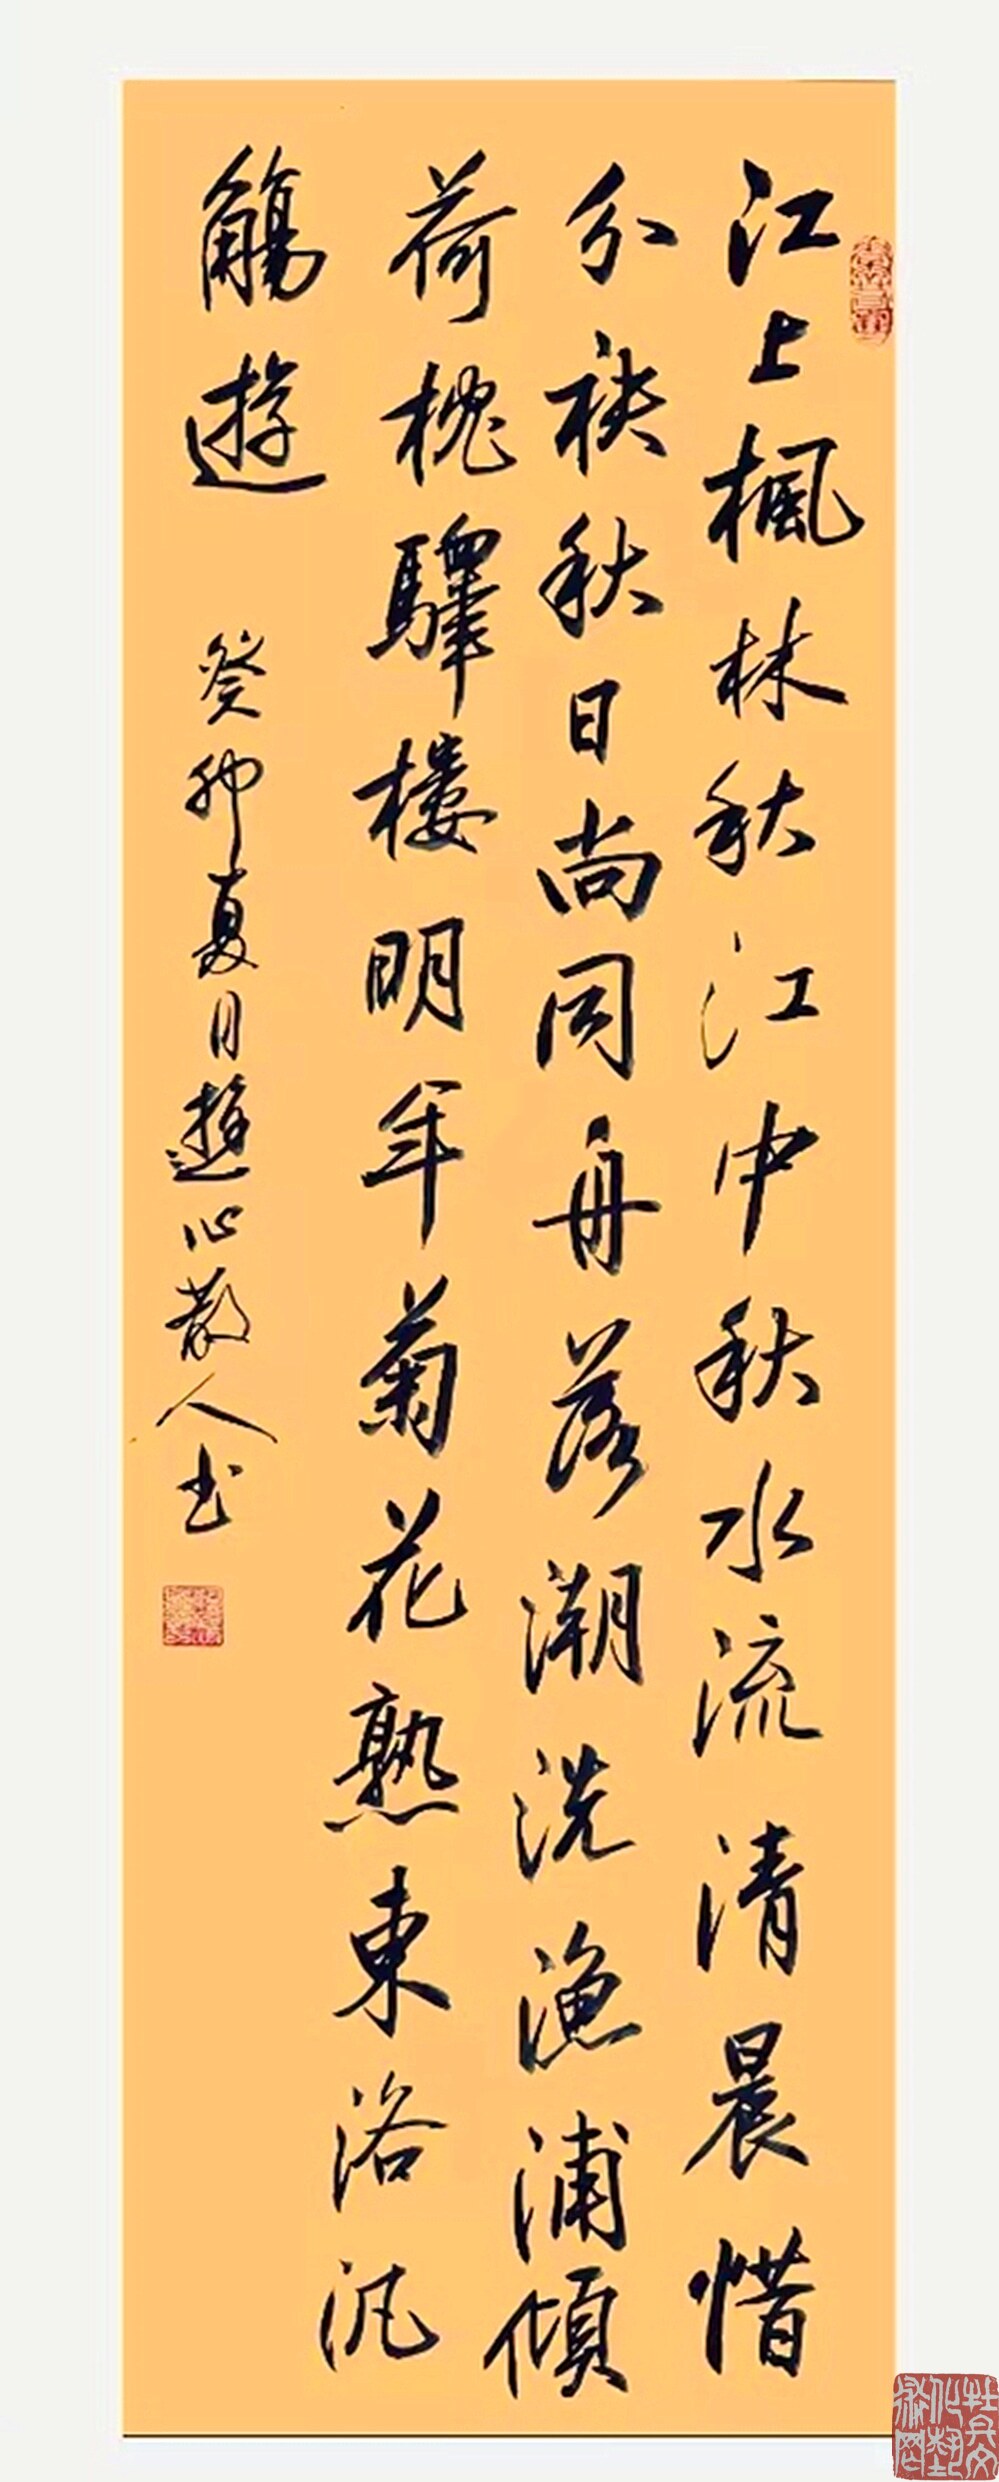 江上楓林秋江中秋水流清晨惜
分袂秋日尚同舟落潮洗漁浦傾
荷枕驛樓明年菊花熟東洛汎
觴遊
癸卯夏月遊心散人书